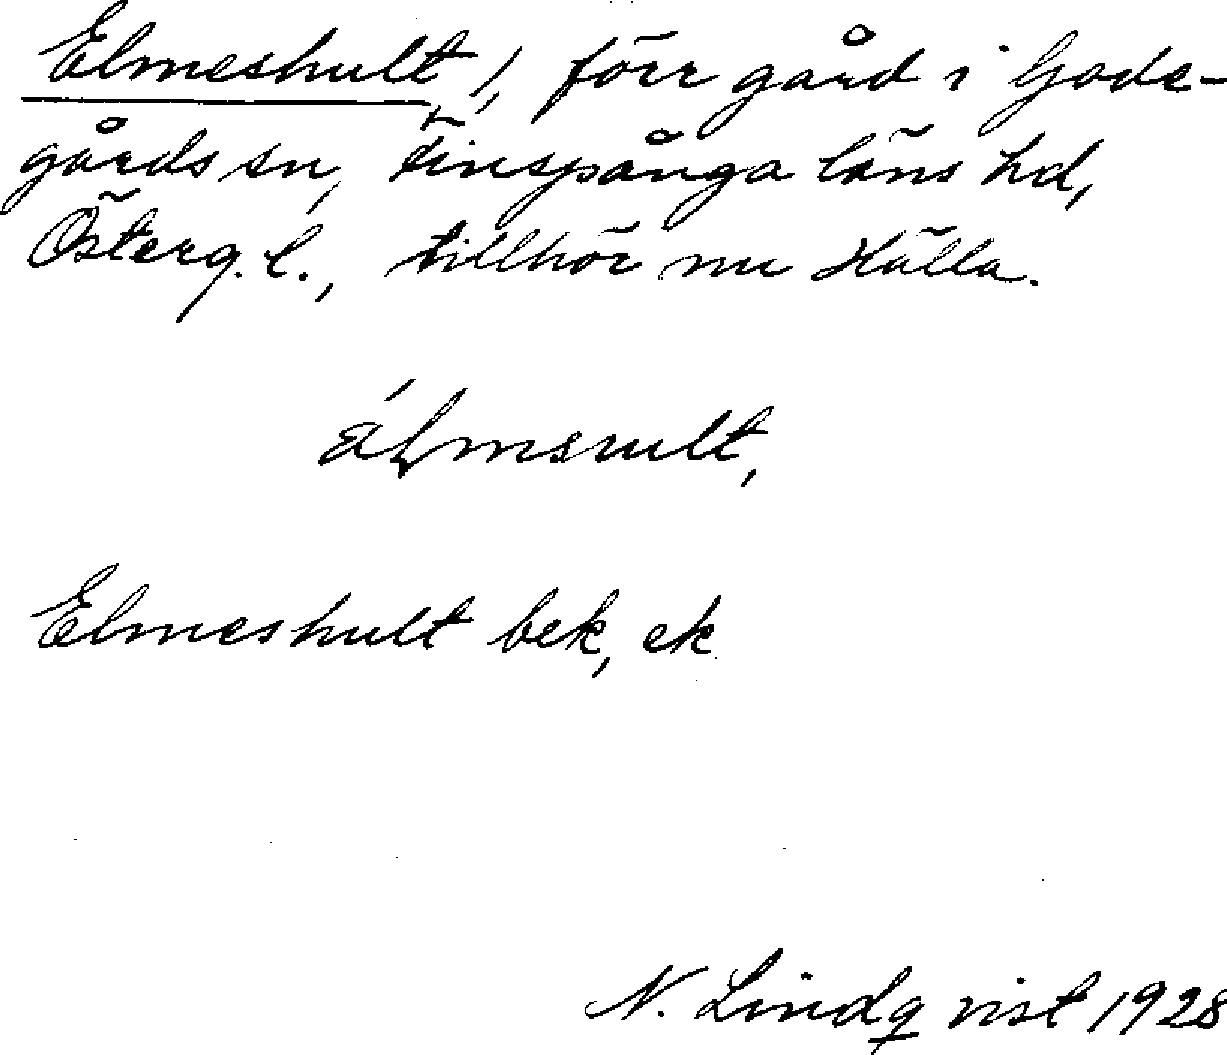 Elmeshult !, förr gård i Gode-
gårds sn, Finspånga läns hd,
Österg. l., tillhör nu Hälla.
Elmeshult bek, ek
N. Lindqvist 1928